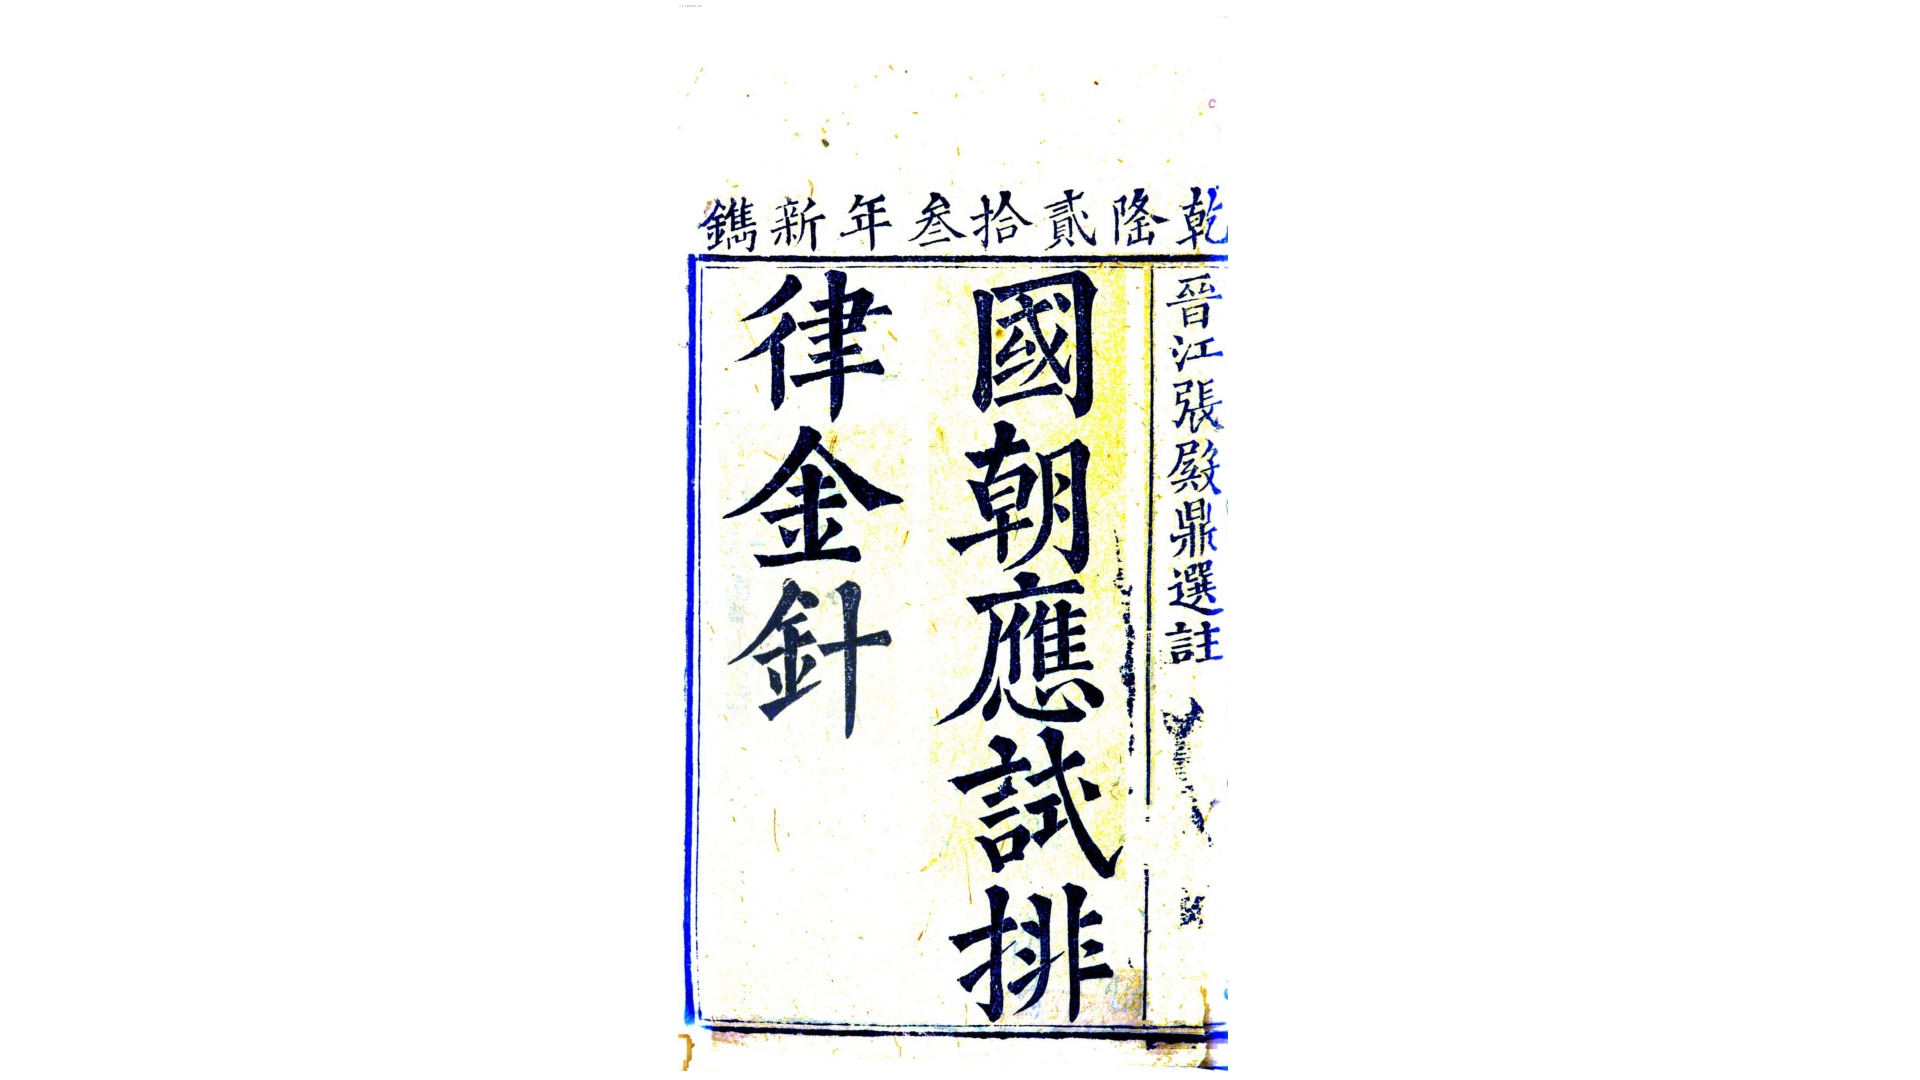 乾隆貳拾叁年新鐫
晉江張殿鼎選註
國朝應試排
律金針